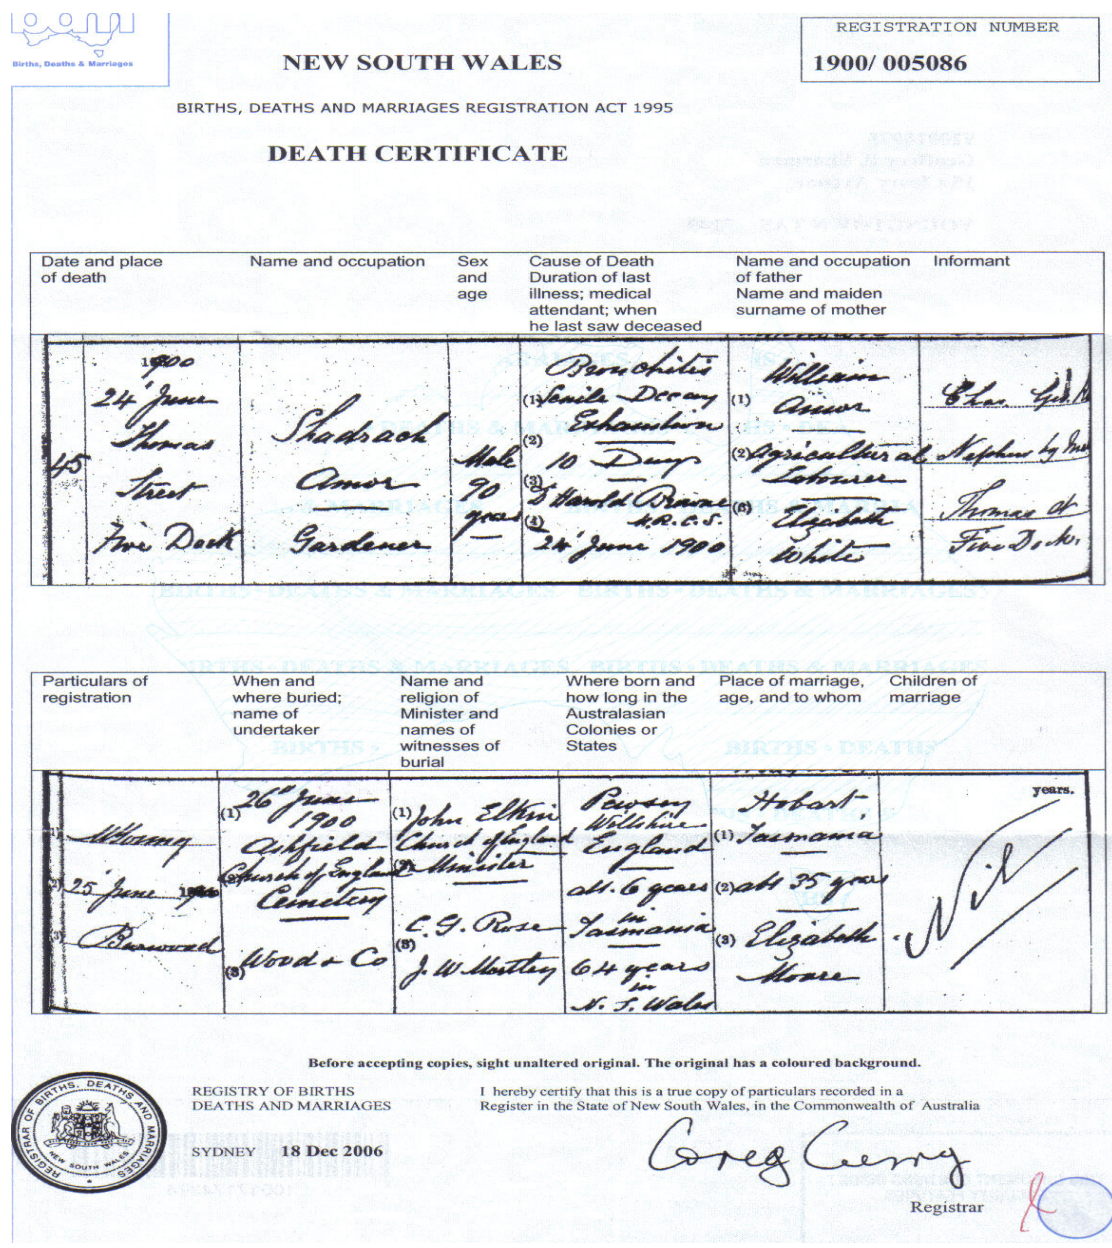 Births, Deaths & Marriages
REGISTRATION NUMBER
1900/ 005086
NEW SOUTH WALES
BIRTHS, DEATHS AND MARRIAGES REGISTRATION ACT 1995
DEATH CERTIFICATE
Date and place
of death
Name and occupation
Sex
and
age
Cause of Death
Duration of last
illness; medical
attendant; when
he last saw deceased
Name and occupation
of father
Name and maiden
surname of mother
Informant
45
1900
24 June
Thomas
Street
Five Dock
Shadrach
Amor
Gardener
Male
90
years
Bronchitis
(1) Senile Decay
(2) Exhaustion
10 Days
(3) Dr Harold Browne
M.R.C.S.
(4) 24 June 1900
William
(1) Amor
(2) Agricultural
Labourer
(3) Elizabeth
White
Chas.
Nephew by
Thomas St
Five Dock
Particulars of
registration
When and
where buried;
name of
undertaker
Name and
religion of
Minister and
names of
witnesses of
burial
Where born and
how long in the
Australasian
Colonies or
States
Place of marriage,
age, and to whom
Children of
marriage
(1)
(2) 25 June
(3) Burwood
(1) 26th June
1900
Ashfield
(2) Church of England
Cemetery
(3) Wood & Co
(1) John Elkin
Church of England
(2) Minister
C. G. Rose
(3)
J. W. Mortley
Pewsey
Wiltshire
England
abt. 6 years
in
Tasmania
64 years
in
N. S. Wales
Hobart
(1) Tasmania
(2) abt 35 years
(3) Elizabeth
Moore
years.
Nil
Before accepting copies, sight unaltered original. The original has a coloured background.
REGISTRAR OF BIRTHS, DEATHS AND MARRIAGES
NEW SOUTH WALES
REGISTRY OF BIRTHS
DEATHS AND MARRIAGES
SYDNEY 18 Dec 2006
I hereby certify that this is a true copy of particulars recorded in a
Register in the State of New South Wales, in the Commonwealth of Australia
Greg Curry
Registrar